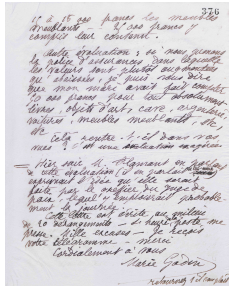 376
15 à 18 000 francs les meubles
meublants 21 000 francs y
compris leur contenu.
Autre évaluation : si nous prenons
la police d'assurances dans laquelle
les valeurs sont plutôt augmentées
que diminuées, je puis vous dire
que mon mari avait fait compter
30 000 francs pour tout absolument
livres, objets d'art, cave, argenterie
voitures, meubles meublants, etc
etc
Cela rentre-t-il dans vos
vues ? c'est une évaluation
= Hier soir M. Flamant en parlant
de cette évaluation
exprimait l'idée que elle serait
faite par le greffier du juge de
paix, lequel y emploierait probable-
ment la journée.
Cette lettre est écrite au milieu
de 20 dérangements - et l'heure poste me
presse. Mille excuses - Je reçois
votre télégramme - merci
Cordialement à vous
Marie Godin